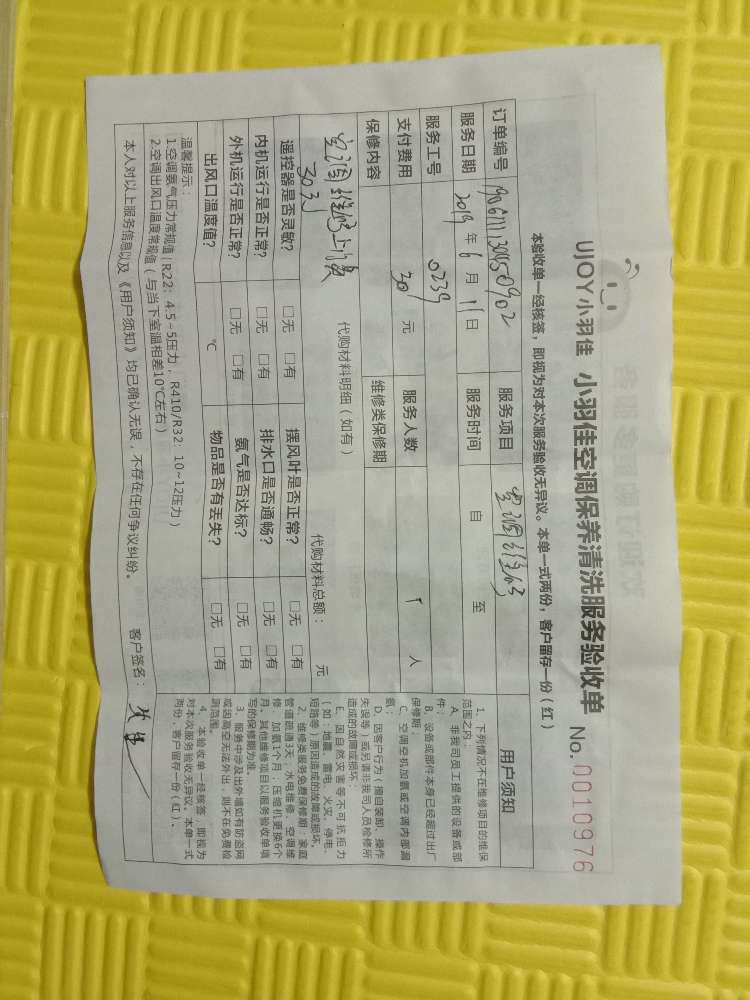 UJOY小羽佳 小羽佳空调保养清洗服务验收单 No. 0010976
本验收单一经核签，即视为对本次服务验收无异议。本单一式两份，客户留存一份（红）
订单编号 服务项目 空调维修 用户须知
服务日期 2019 年 6 月 11 日 服务时间 自 至
服务工号 0239
支付费用 30 元 服务人数 1 人
保修内容 维修类保修期
空调维修上门费 30元
代购材料明细（如有） 代购材料总额： 元
遥控器是否灵敏？ □无 □有 摆风叶是否正常？ □无 □有
内机运行是否正常？ □无 □有 排水口是否通畅？ □无 □有
外机运行是否正常？ □无 □有 氨气是否达标？ □无 □有
出风口温度值？ ℃ 物品是否有丢失？ □无 □有
温馨提示：
1.空调氨气压力常规值（R22：4.5~5压力，R410/R32：10~12压力）
2.空调出风口温度常规值（与当下室温相差10℃左右）
本人对以上服务信息以及《用户须知》均已确认无误，不存在任何争议纠纷。 客户签名： 先生
1、下列情况不在维修项目的维保
范围之内：
A、非我司员工提供的设备或部
件；
B、设备或部件本身已经超过出厂
保修期；
C、空调空机加氨或空调内部漏
氨；
D、因客户行为（擅自装卸、操作
失误等）或另请非我司人员检修所
造成的故障或损坏；
E、因自然灾害等不可抗拒力
（如：地震、雷电、火灾、停电、
短路等）原因造成的故障或损坏。
2、维修类服务免费保修期：家庭
管道疏通3天，水电维修、空调维
修、加氨1个月；压缩机更换6个
月。其他维修项目以服务验收单填
写的保修期为准。
3、服务中涉及出外墙如有防盗网
或因高空无法外出，则不在免费检
测范围。
4、本验收单一经核签，即视为
对本次服务验收无异议。本单一式
两份，客户留存一份（红）。